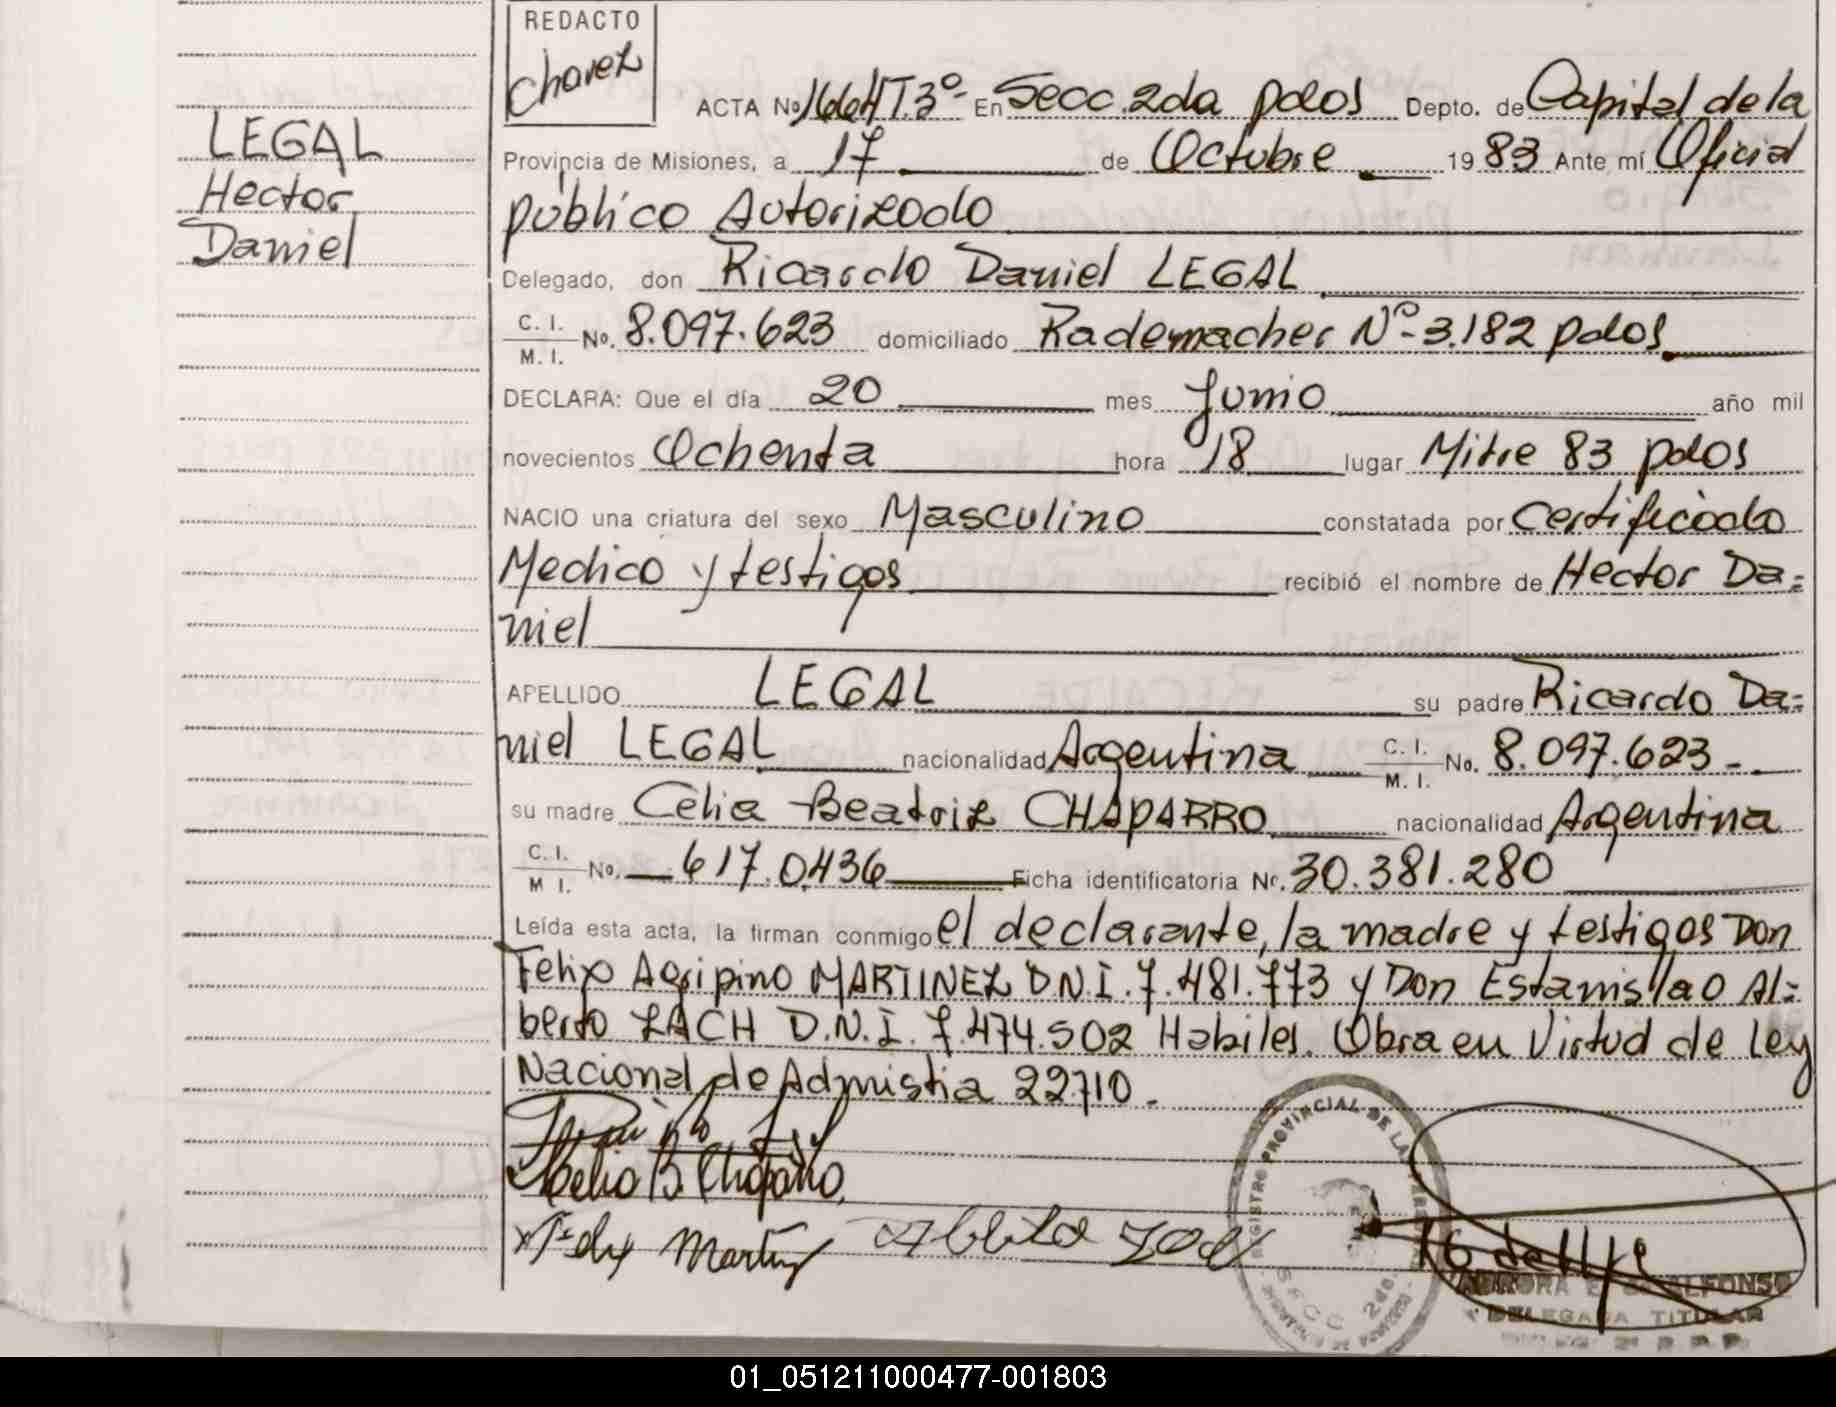 REDACTO
Chavez
ACTA No 1664/T.3º- En Secc. 2da pdos Depto. de Capital de la
LEGAL
Provincia de Misiones, a 17 de Octubre 1983 Ante mí Oficial
Hector
público Autorizado
Daniel
Delegado, don Ricardo Daniel LEGAL
C. I. M. I. No. 8.097.623 domiciliado Rademacher Nº-3.182 pdos
DECLARA: Que el día 20 mes Junio año mil
novecientos Ochenta hora 18 lugar Mitre 83 pdos
NACIO una criatura del sexo Masculino constatada por Certificado
Medico y testigos recibió el nombre de Hector Da=
niel
APELLIDO LEGAL su padre Ricardo Da=
niel LEGAL nacionalidad Argentina C. I. M. I. No. 8.097.623-
su madre Celia Beatriz CHAPARRO nacionalidad Argentina
C. I. M I. No. 617.0436 Ficha identificatoria Nº. 30.381.280
Leída esta acta, la firman conmigo el declarante, la madre y testigos Don
Felix Agripino MARTINEZ D.N.I. 7.481.773 y Don Estanislao Al=
berto ZACH D.N.I. 7.474.502 Habiles. Obra en Virtud de Ley
Nacional de Admistia 22710.-
Celia B. Chaparro
Felix Martinez
REGISTRO PROVINCIAL DE LAS
SECC 2da
ALFONSO
DELEGADA TITULAR
01_051211000477-001803